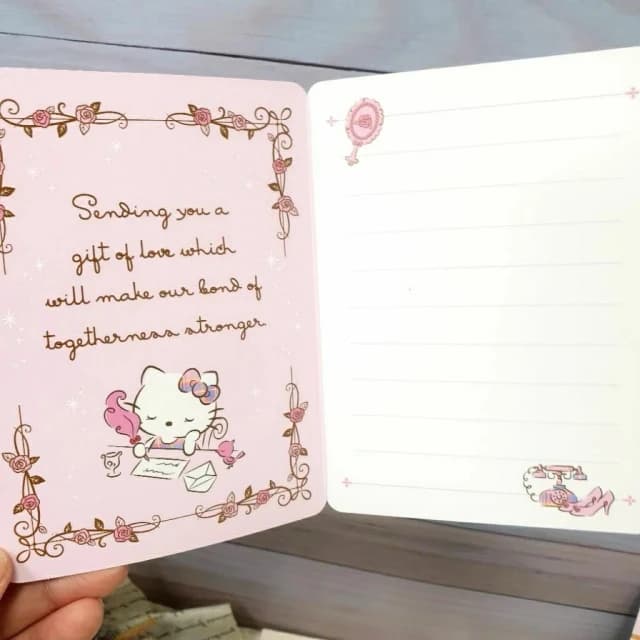 Sending you a
gift of love which
will make our bond of
togetherness stronger